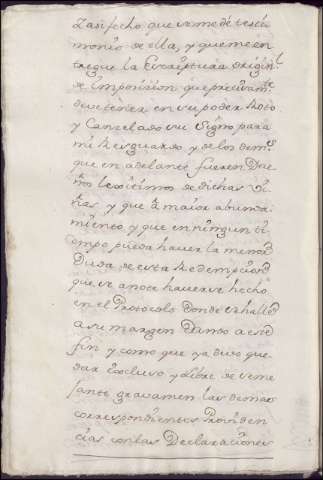 Zasfecho que se me dé testi
monio de ella, y que me en
tregue la Escriptura origin.l
de imposision que precisam.te
deve tener en su poder Roto
y Canzelado su Signo para
mi Resguardo y de los dem.s
que en adelante fueren Due
ños lexitimos de dichas
ties, y que á maior abunda
miento, y que en ningun ti
empo pueda haver la menor
Duda de esta Redempcion
que se anote haverse hecho
en el Protocolo donde se halla
a su margen a este
fin y como que ya devo que
dar Excluso y Libre de seme
Jante gravamen las demas
correspondientes Providen
cias con las Declaraciones